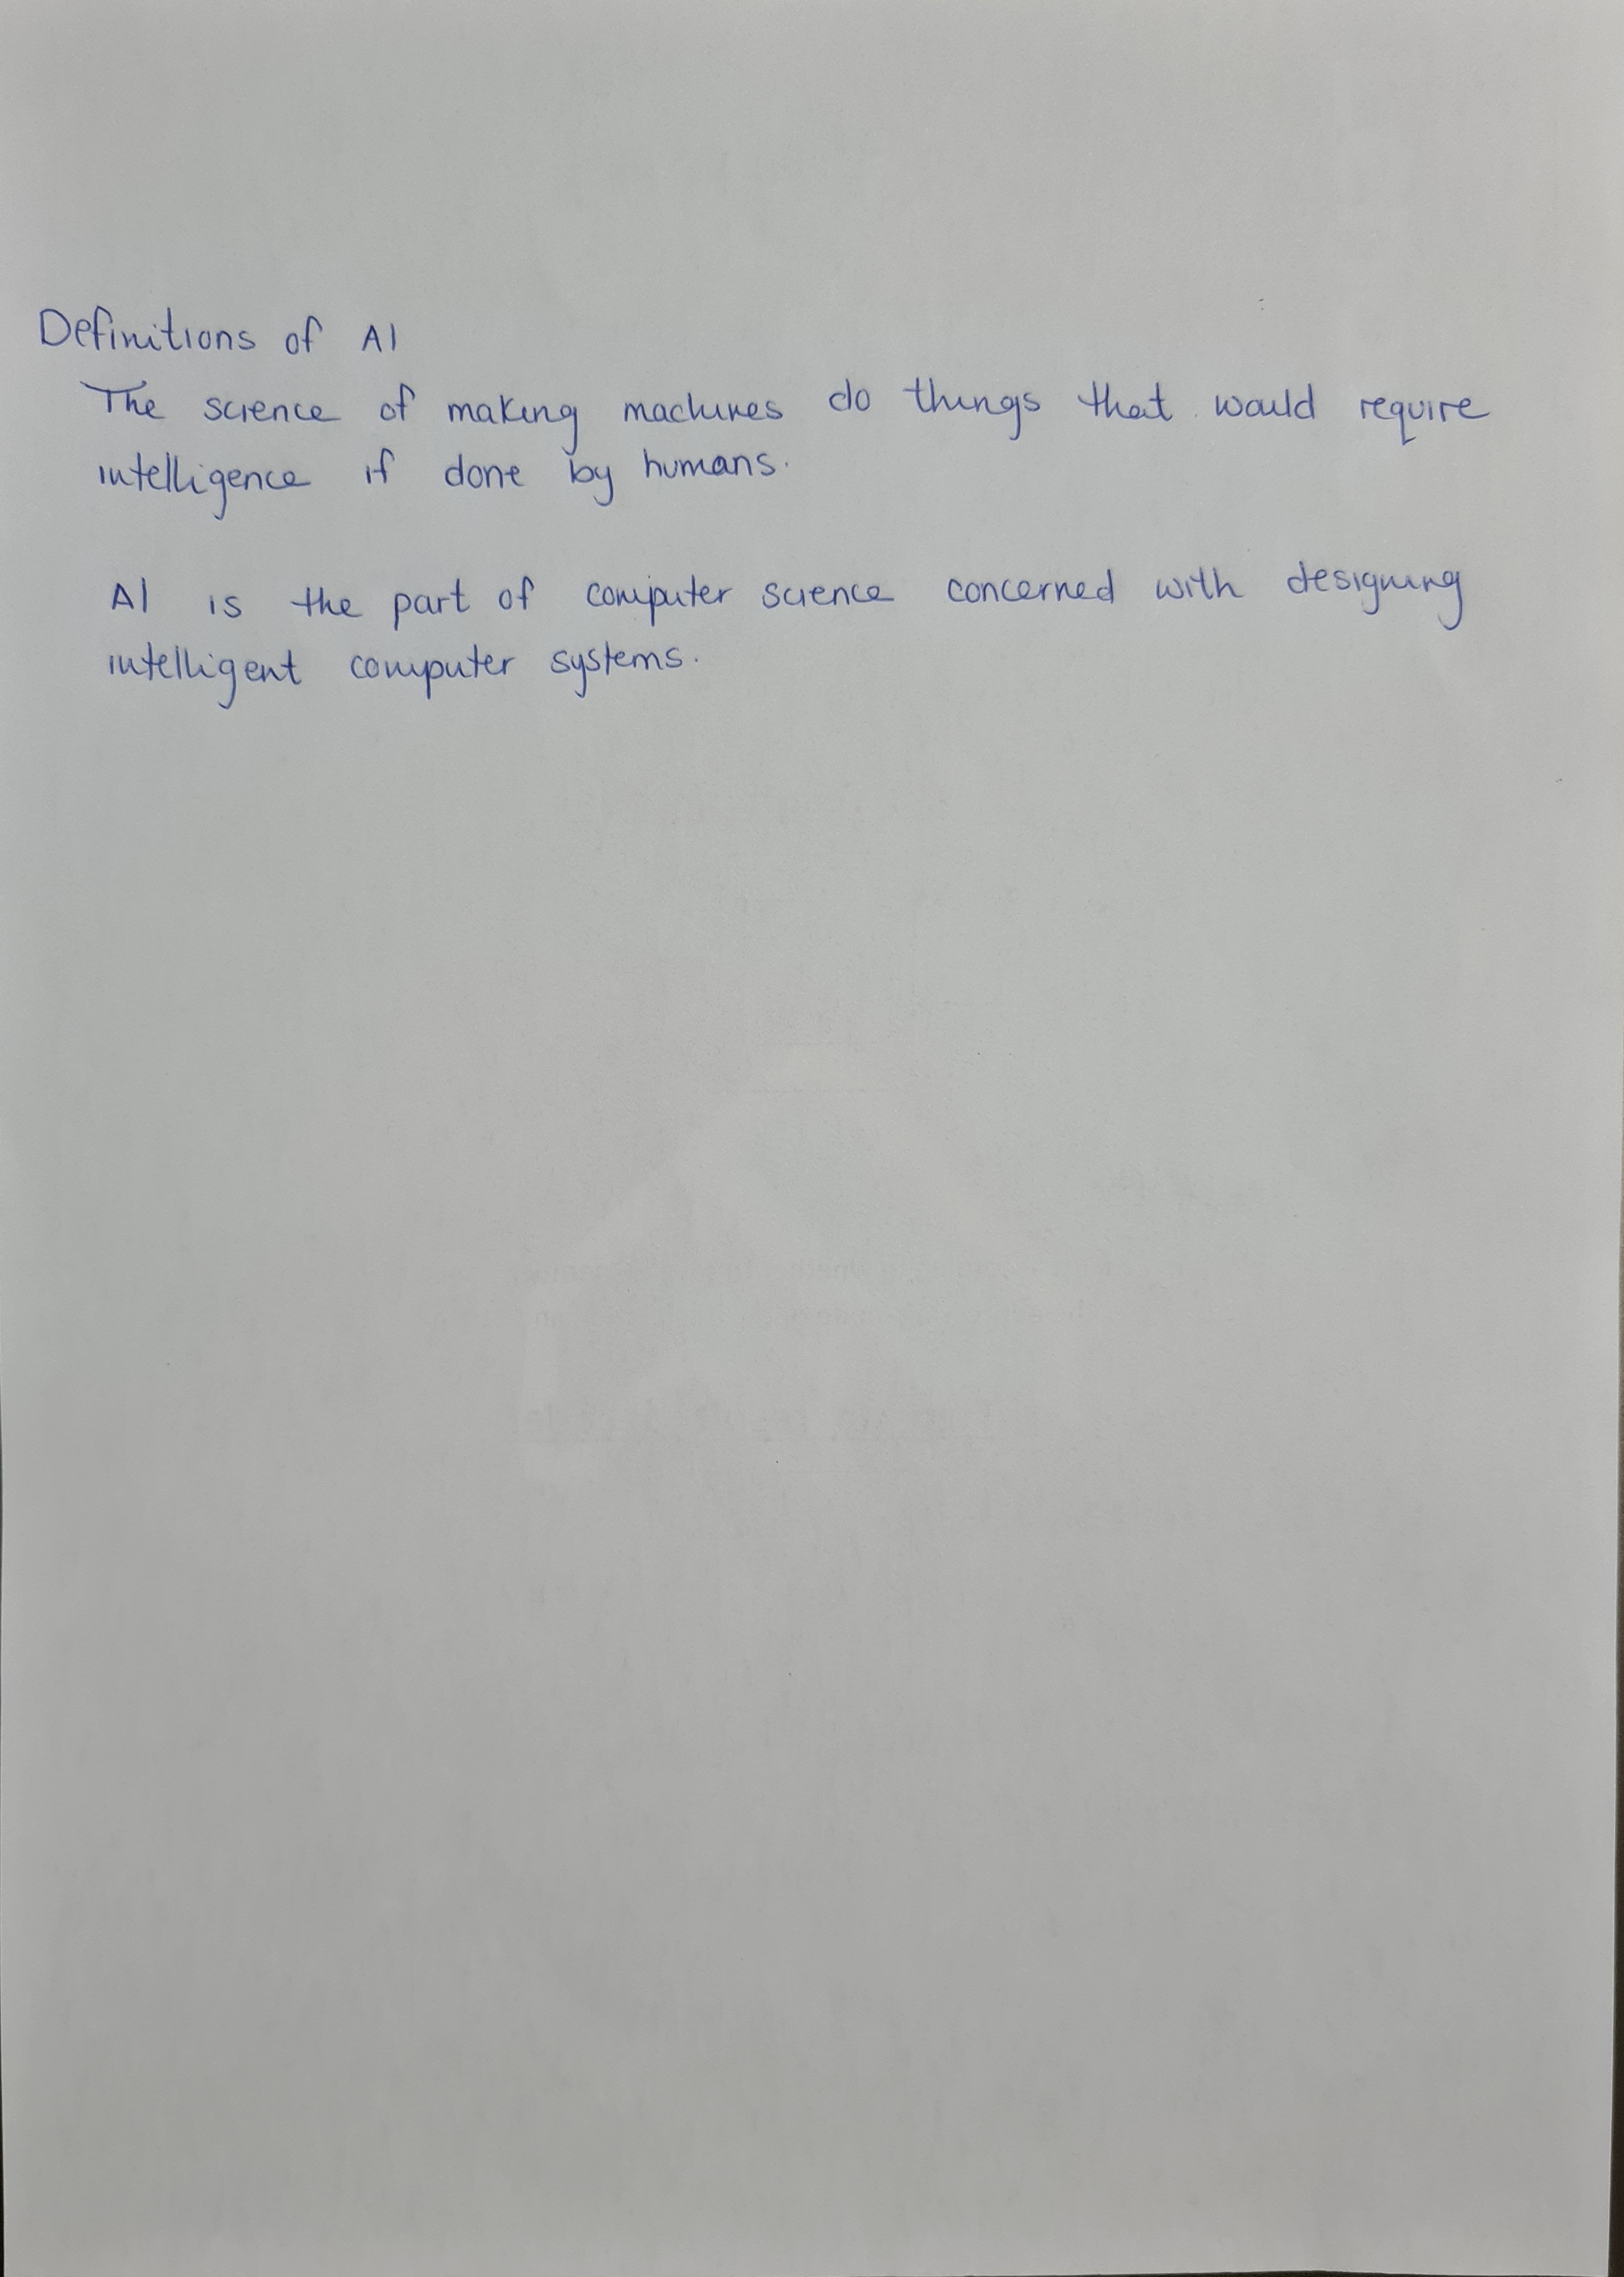 Definitions of AI
The science of making machines do things that would require
intelligence if done by humans.
AI is the part of computer science concerned with designing
intelligent computer systems.